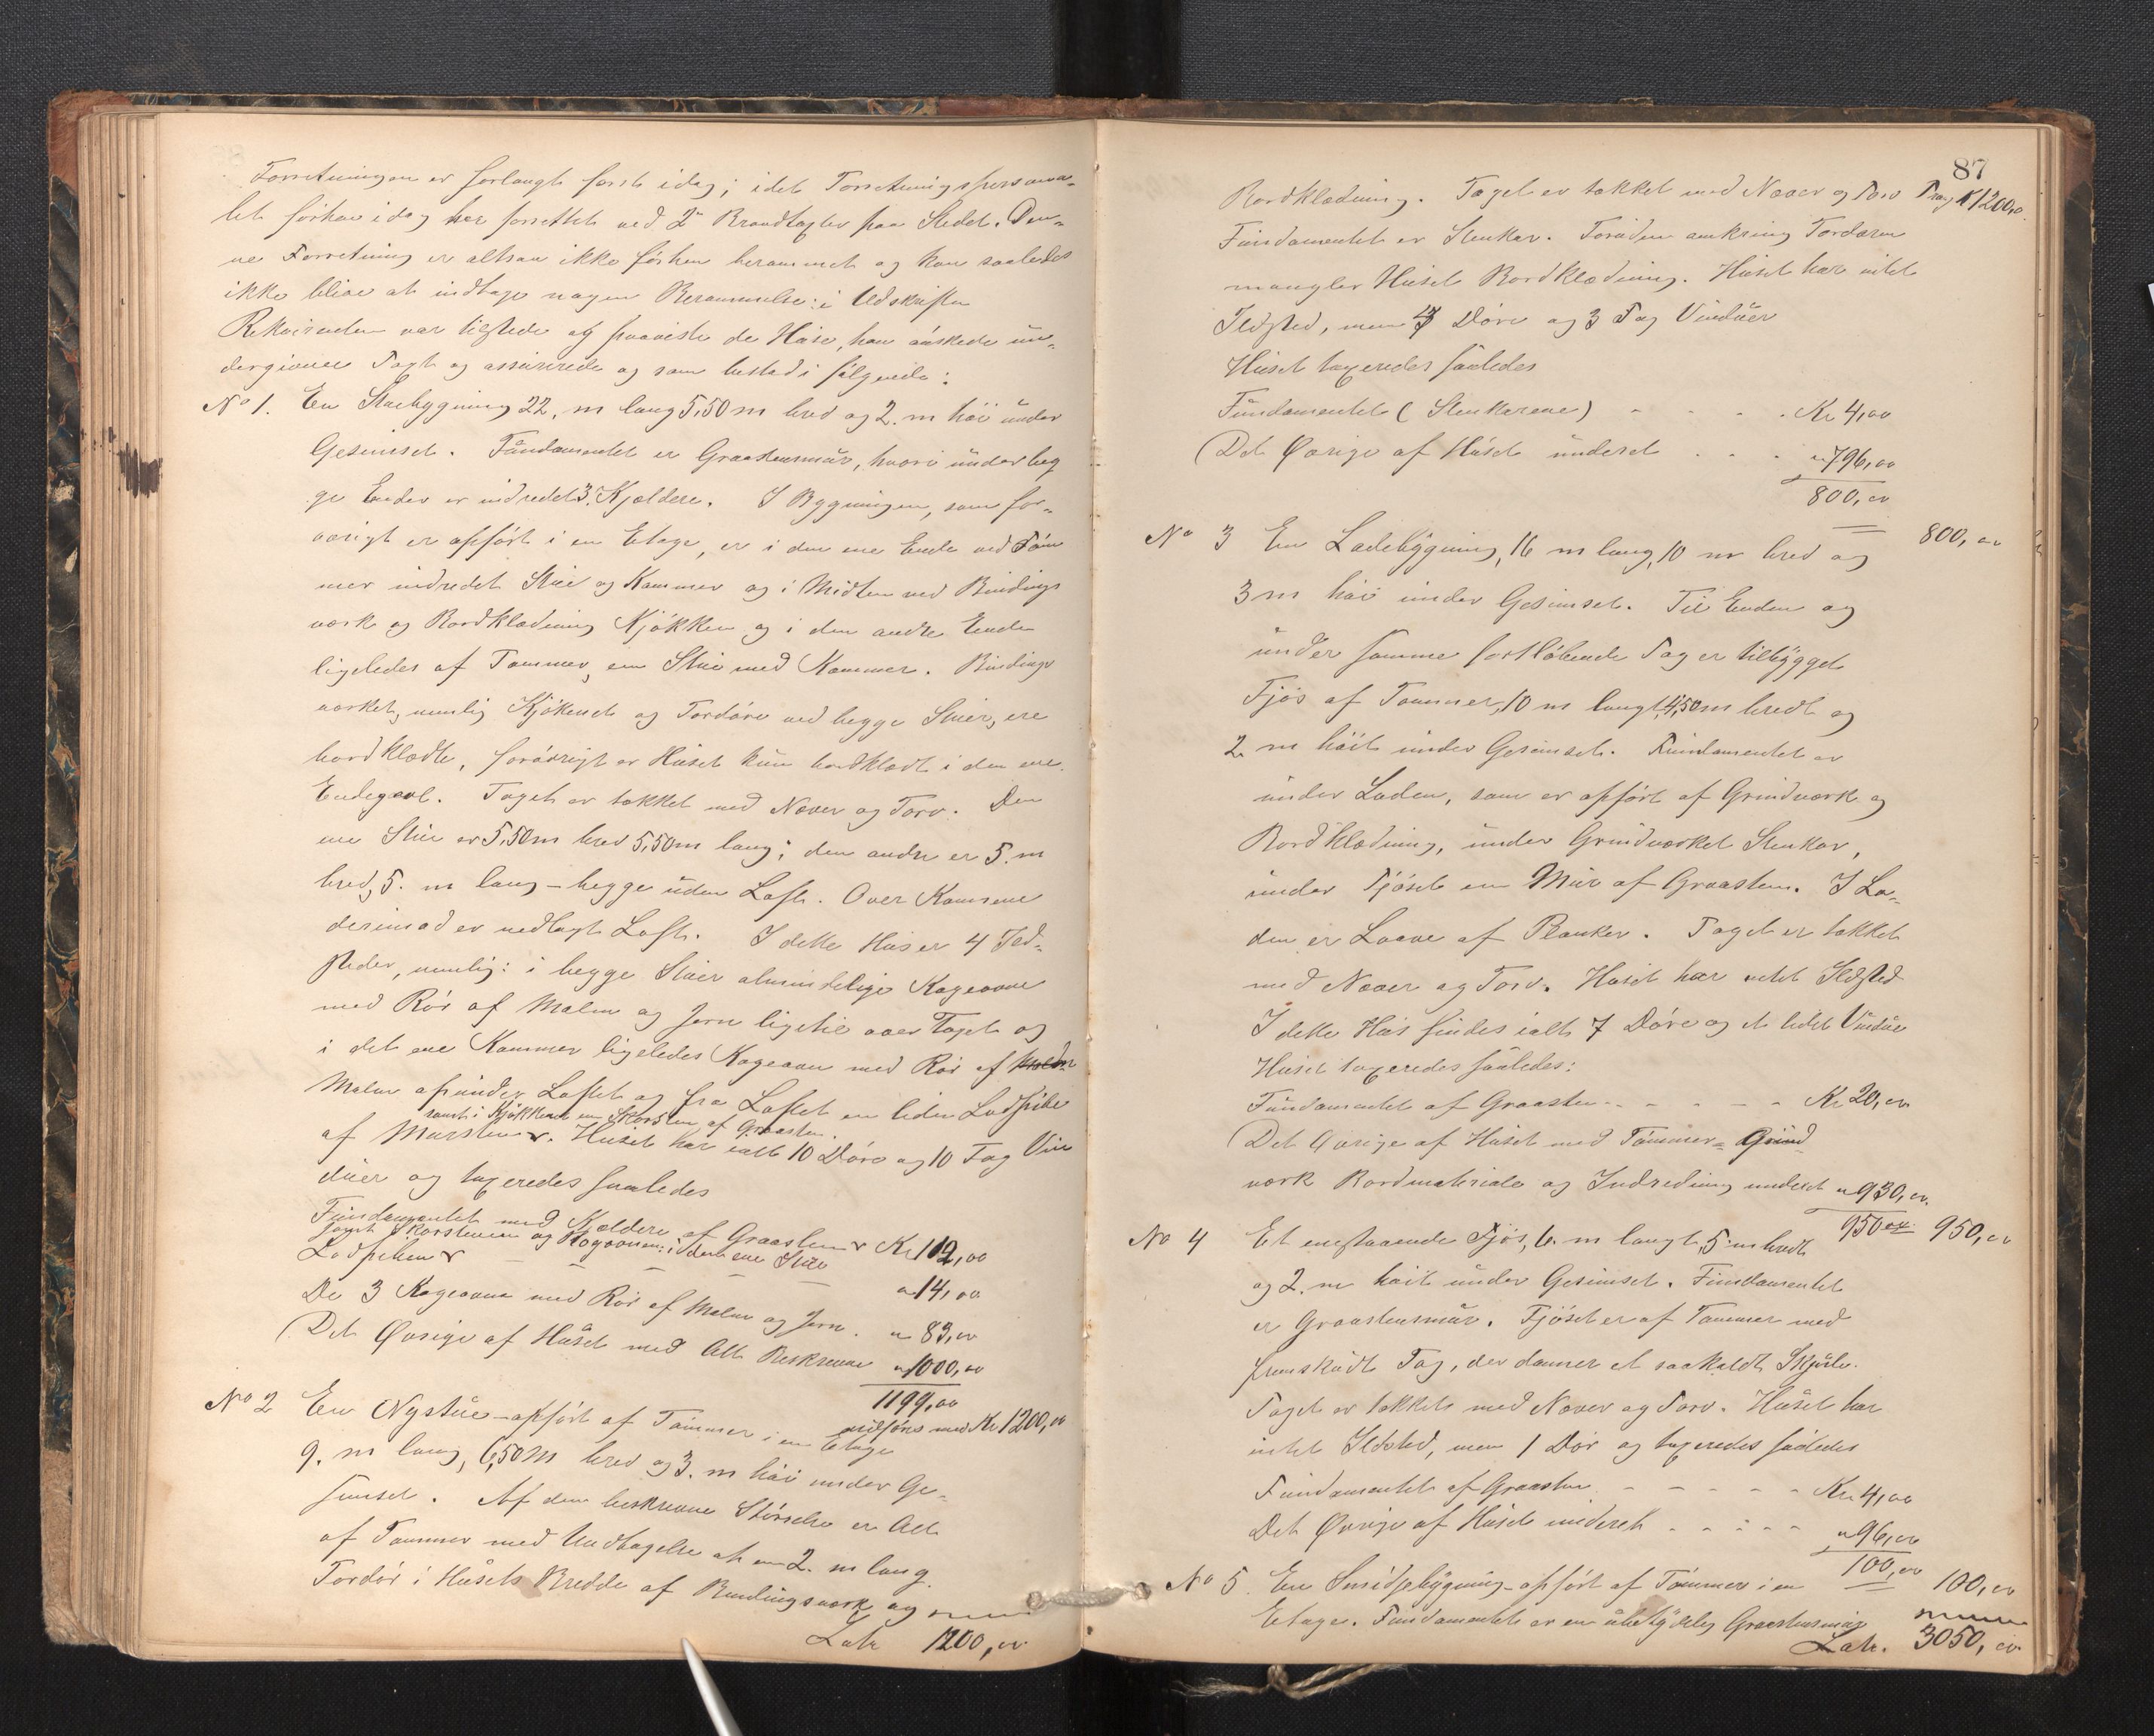 Forretningen er forlangt først idag; idet Forretningspersona-
let forhen idag har forrettet ved 2de Brandtaxter paa Stedet. Den-
ne Forretning er altsaa ikke förhen berammet og kan saaledes
ikke blive at indtage nogen Berammelse i Udskriften
Rekvirenten var tilstede og paaviste de Huse, han önskede un-
dergivne Taxt og assurerede og som bestod i fölgende:
No 1. En Stuebygning 22, m lang 5,50 m bred og 2. m höi under
Gesimset. Fundamentet er Graastensmur, hvori under beg
ge Ender er indredet 3 Kjeldere. I Bygningen, som for-
övrigt er opfört i en Etage, er i den ene Ende ved Töm
mer indredet Stue og Kammer og i Midten ved Bindings
værk og Bordklædning Kjökken og i den andre Ende
ligeledes af Tømmer, en Stue med Kammer. Bindings
værket, nemlig Kjökenet og Fordöre ved begge Stuer, ere
bordklædte, forövrigt er Huset kun bordklædt i den ene
Endegavl. Taget er tækket med Næver og Torv. Den
ene Stue er 5,50 m bred 5,50 m lang; den andre er 5. m
bred, 5. m lang - begge uden Loft. Over Kamrene
derimod er nedlagt Loft. I dette Hus er 4 Ild-
steder, nemlig: i begge Stuer almindelige Kogeovne
med Rör af Malm og Jern ligetil over Taget og
i det ene Kammer ligeledes Kogeovn med Rör af
Malm op under Loftet og fra Loftet en liden Ludpibe
samt i Kjökkenet en Skorsten af Graasten.
af Mursten. Huset har ialt 10 Döre og 10 Fag Vin
duer og taxeredes saaledes
Fundamentet med Kjeldere af Graasten Kr 102,00
samt Skorstenen og Kogeovnen i den ene Stue
Ludpiben - - - - „ 14,00
De 3 Kogeovne med Rör af Malm og Jern. „ 83,00
Det Øvrige af Huset med Alt Beskrevne „ 1000,00
1199,00
udföres med Kr 1200,00
No 2 En Nystue - opfört af Tömmer i en Etage
9. m lang, 6,50 m bred og 3. m höi under Ge-
simset. Af den beskrevne Störrelse er Alt
af Tømmer med Undtagelse af en 2. m lang
Fordör i Husets Bredde af Bindingsværk og
Late 1200,00
87
Bordklædning. Taget er tækket med Næver og Torv Trsp. K 1200,00
Fundamentet er Stenkar. Foruden omkring Fordøren
mangler Huset Bordklædning. Huset har intet
Ildsted, men 7 Döre og 3 Fag Vinduer
Huset taxeredes saaledes
Fundamentet (Stenkarene) - - - - Kr 4,00
Det Øvrige af Huset underet . . . „ 796,00
800,00
No 3 En Ladebygning, 16 m lang, 10 m bred og 800,00
3 m höi under Gesimset. Til Enden og
under samme fortløbende Tag er tilbygget
Fjös af Tømmer, 10 m langt, 4,50 m bredt og
2. m höit under Gesimset. Fundamentet er
under Laden, som er opfört af Grindværk og
Bordklædning, under Grindværket Stenkar,
under Fjöset en Mur af Graasten. I La-
den er Laave af Planker. Taget er tækket
med Næver og Torv. Huset har intet Ildsted
I dette Hus findes ialt 7 Döre og et lidet Vindue
Huset taxeredes saaledes:
Fundamentet af Graasten - - - - - Kr 20,00
Det Øvrige af Huset med Tømmer- Grind
værk Bordmateriale og Indredning underet „ 930,00
950,00 950,00
No 4 Et enestaaende Fjös, 6. m langt, 5. m bredt
og 2. m höit under Gesimset. Fundamentet
er Graastensmur. Fjöset er af Tømmer med
fremskudt Tag, der danner et saakaldt Skjule.
Taget er tækket med Næver og Torv. Huset har
intet Ildsted, men 1 Dör og taxeredes saaledes
Fundamentet af Graasten - - - - - Kr 4,00
Det Øvrige af Huset underet - - - - - „ 96,00
100,00 100,00
No 5. En Smidjebygning - opfört af Tömmer i en
Etage. Fundamentet er en ubetydelig Graastensmur
Late. 3050,00